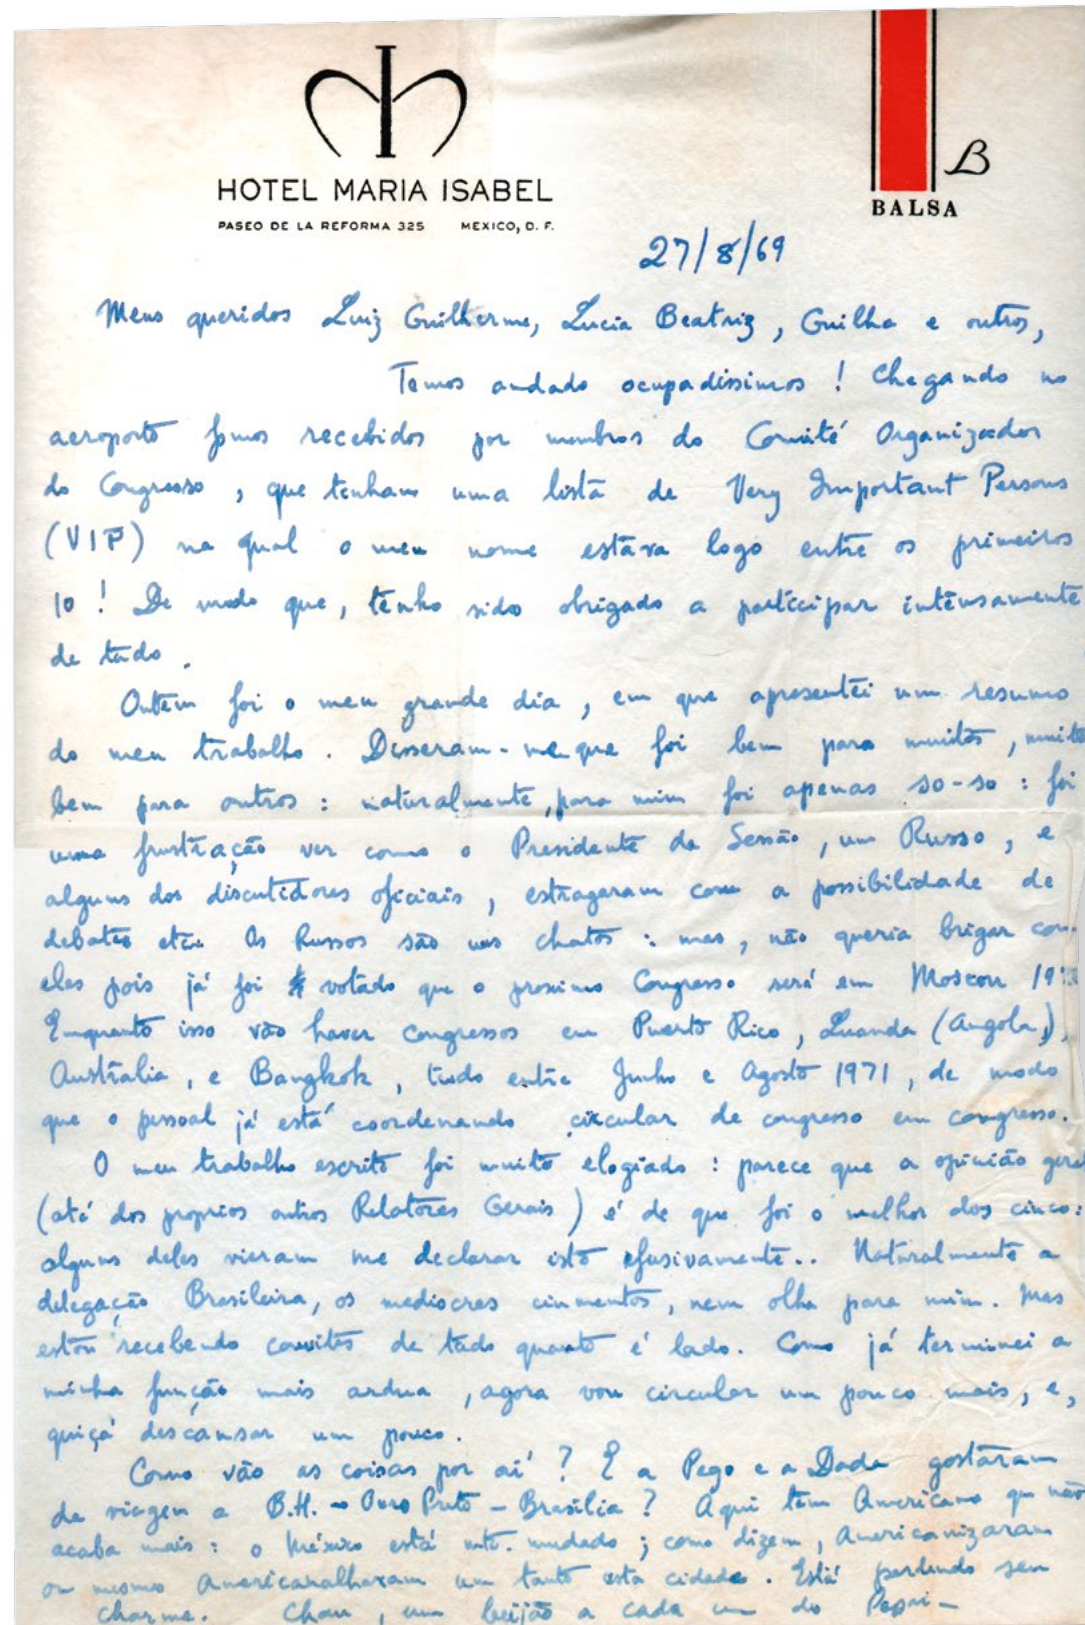 HOTEL MARIA ISABEL
PASEO DE LA REFORMA 325 MEXICO, D. F.
B
BALSA
27/8/69
Meus queridos Luiz Guilherme, Lucia Beatriz, Guilha e outros,
Temos andado ocupadissimos ! Chegando no
aeroporto fomos recebidos por membros do Comité Organizador
do Congresso, que tenham uma lista de Very Important Persons
(VIP) na qual o meu nome estava logo entre os primeiros
10 ! De modo que, tenho sido obrigado a participar intensamente
de tudo.
Ontem foi o meu grande dia, em que apresentei um resumo
do meu trabalho. Disseram-me que foi bem para muitos, muito
bem para outros : naturalmente, para mim foi apenas so-so : foi
uma frustração ver como o Presidente da Sessão, um Russo, e
alguns dos discutidores oficiais, estragaram com a possibilidade de
debates etc. Os Russos são uns chatos : mas, não queria brigar com
eles pois já foi votado que o proximo Congresso será em Moscou 19
Enquanto isso vão haver congressos em Puerto Rico, Luanda (Angola),
Australia, e Bangkok, tudo entre Junho e Agosto 1971, de modo
que o pessoal já está coordenando circular de congresso em congresso.
O meu trabalho escrito foi muito elogiado : parece que a opinião geral
(até dos proprios outros Relatores Gerais) é de que foi o melhor dos cinco:
alguns deles vieram me declarar isto efusivamente.. Naturalmente a
delegação Brasileira, os mediocres ciumentos, nem olha para mim. Mas
estou recebendo convites de tudo quanto é lado. Como já terminei a
minha função mais ardua, agora vou circular um pouco mais, e,
quiçá descansar um pouco.
Como vão as coisas por aí ? E a Pego e a Dada gostaram
da viagem a B.H. - Ouro Preto - Brasilia ? Aqui tem Americano que não
acaba mais : o México está mto. mudado ; como dizem, Americanizaram
ou mesmo Americanalharam um tanto esta cidade. Está perdendo seu
charme. Chau, um beijão a cada um do Papai-